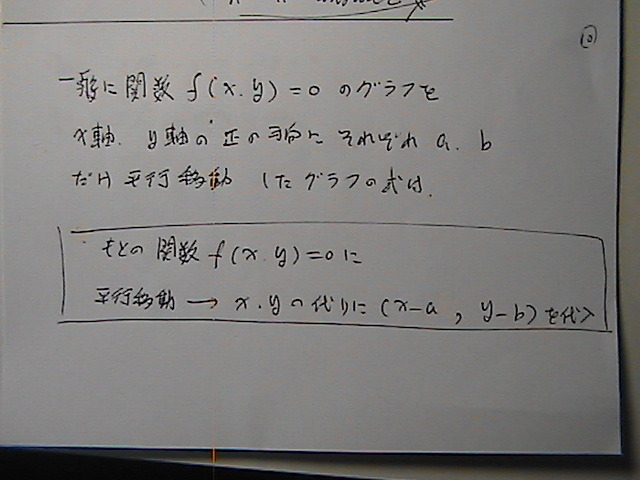 ⑩
一般に関数 f(x.y)=0 のグラフを
x軸. y軸の正の方向にそれぞれ a. b
だけ平行移動したグラフの式は.
もとの関数 f(x.y)=0に
平行移動 → x.yの代りに (x-a , y-b)を代入